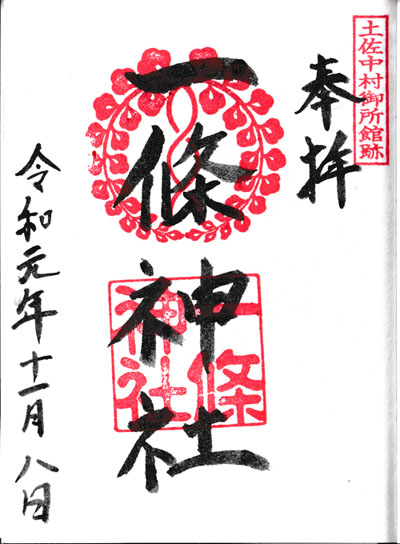 土佐中村御所館跡
奉拝
一條神社
一條
神社
令和元年十一月八日